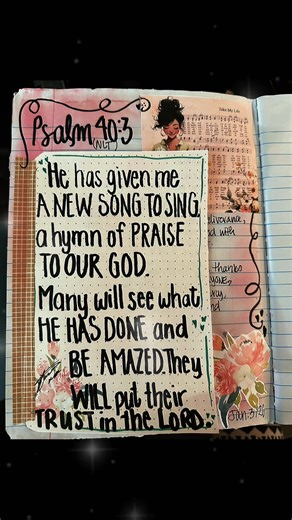 Psalm 40:3
(NLT)
Take My Life
He has given me
A NEW SONG TO SING,
a hymn of PRAISE
TO OUR GOD.
Many will see what
HE HAS DONE and
BE AMAZED. They
WILL put their
TRUST in the LORD.
deliverance,
with
thanks